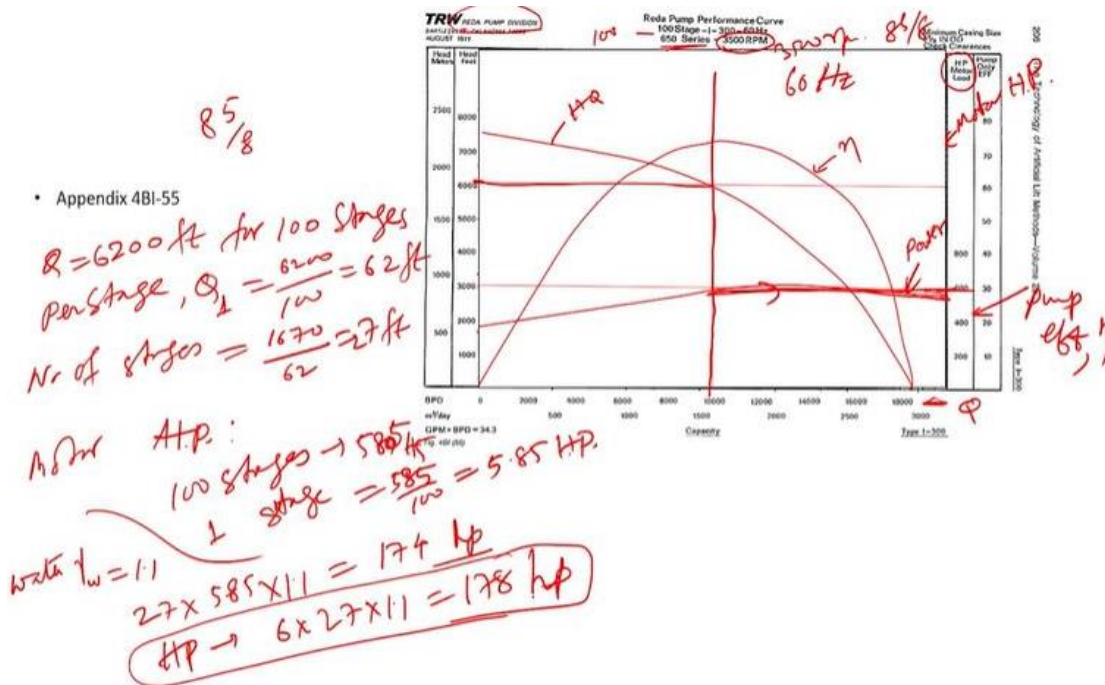 TRW REDA PUMP DIVISION
AUGUST 1977
Reda Pump Performance Curve
100 Stage-I-300-60 Hz
650 Series - 3500 RPM
Minimum Casing Size
Check Clearances
100
3500 rpm
8 5/8
60 Hz
Head Meters
Head Feet
H.P. Motor Load
Pump Only EFF
Motor H.P.
HQ
η
Power
Pump eff, η
2500
2000
1500
1000
500
8000
7000
6000
5000
4000
3000
2000
1000
800
600
400
200
80
70
60
50
40
30
20
10
BPD 0 2000 4000 6000 8000 10000 12000 14000 16000 18000
m³/day 500 1000 1500 2000 2500 3000
GPM × BPD ÷ 34.3
Fig. 4BI (55)
Capacity
Type I-300
Q
208
Technology of Artificial Lift Methods—Volume
Type I-300
8 5/8
• Appendix 4BI-55
Q = 6200 ft for 100 stages
Per stage, Q1 = 6200/100 = 62 ft
Nr of stages = 1670/62 = 27 ft
Motor H.P. :
100 stages → 585
1 stage = 585/100 = 5.85 HP.
water γw = 1.1
27 x 585 x 1.1 = 174 hp
HP → 6 x 27 x 1.1 = 178 hp